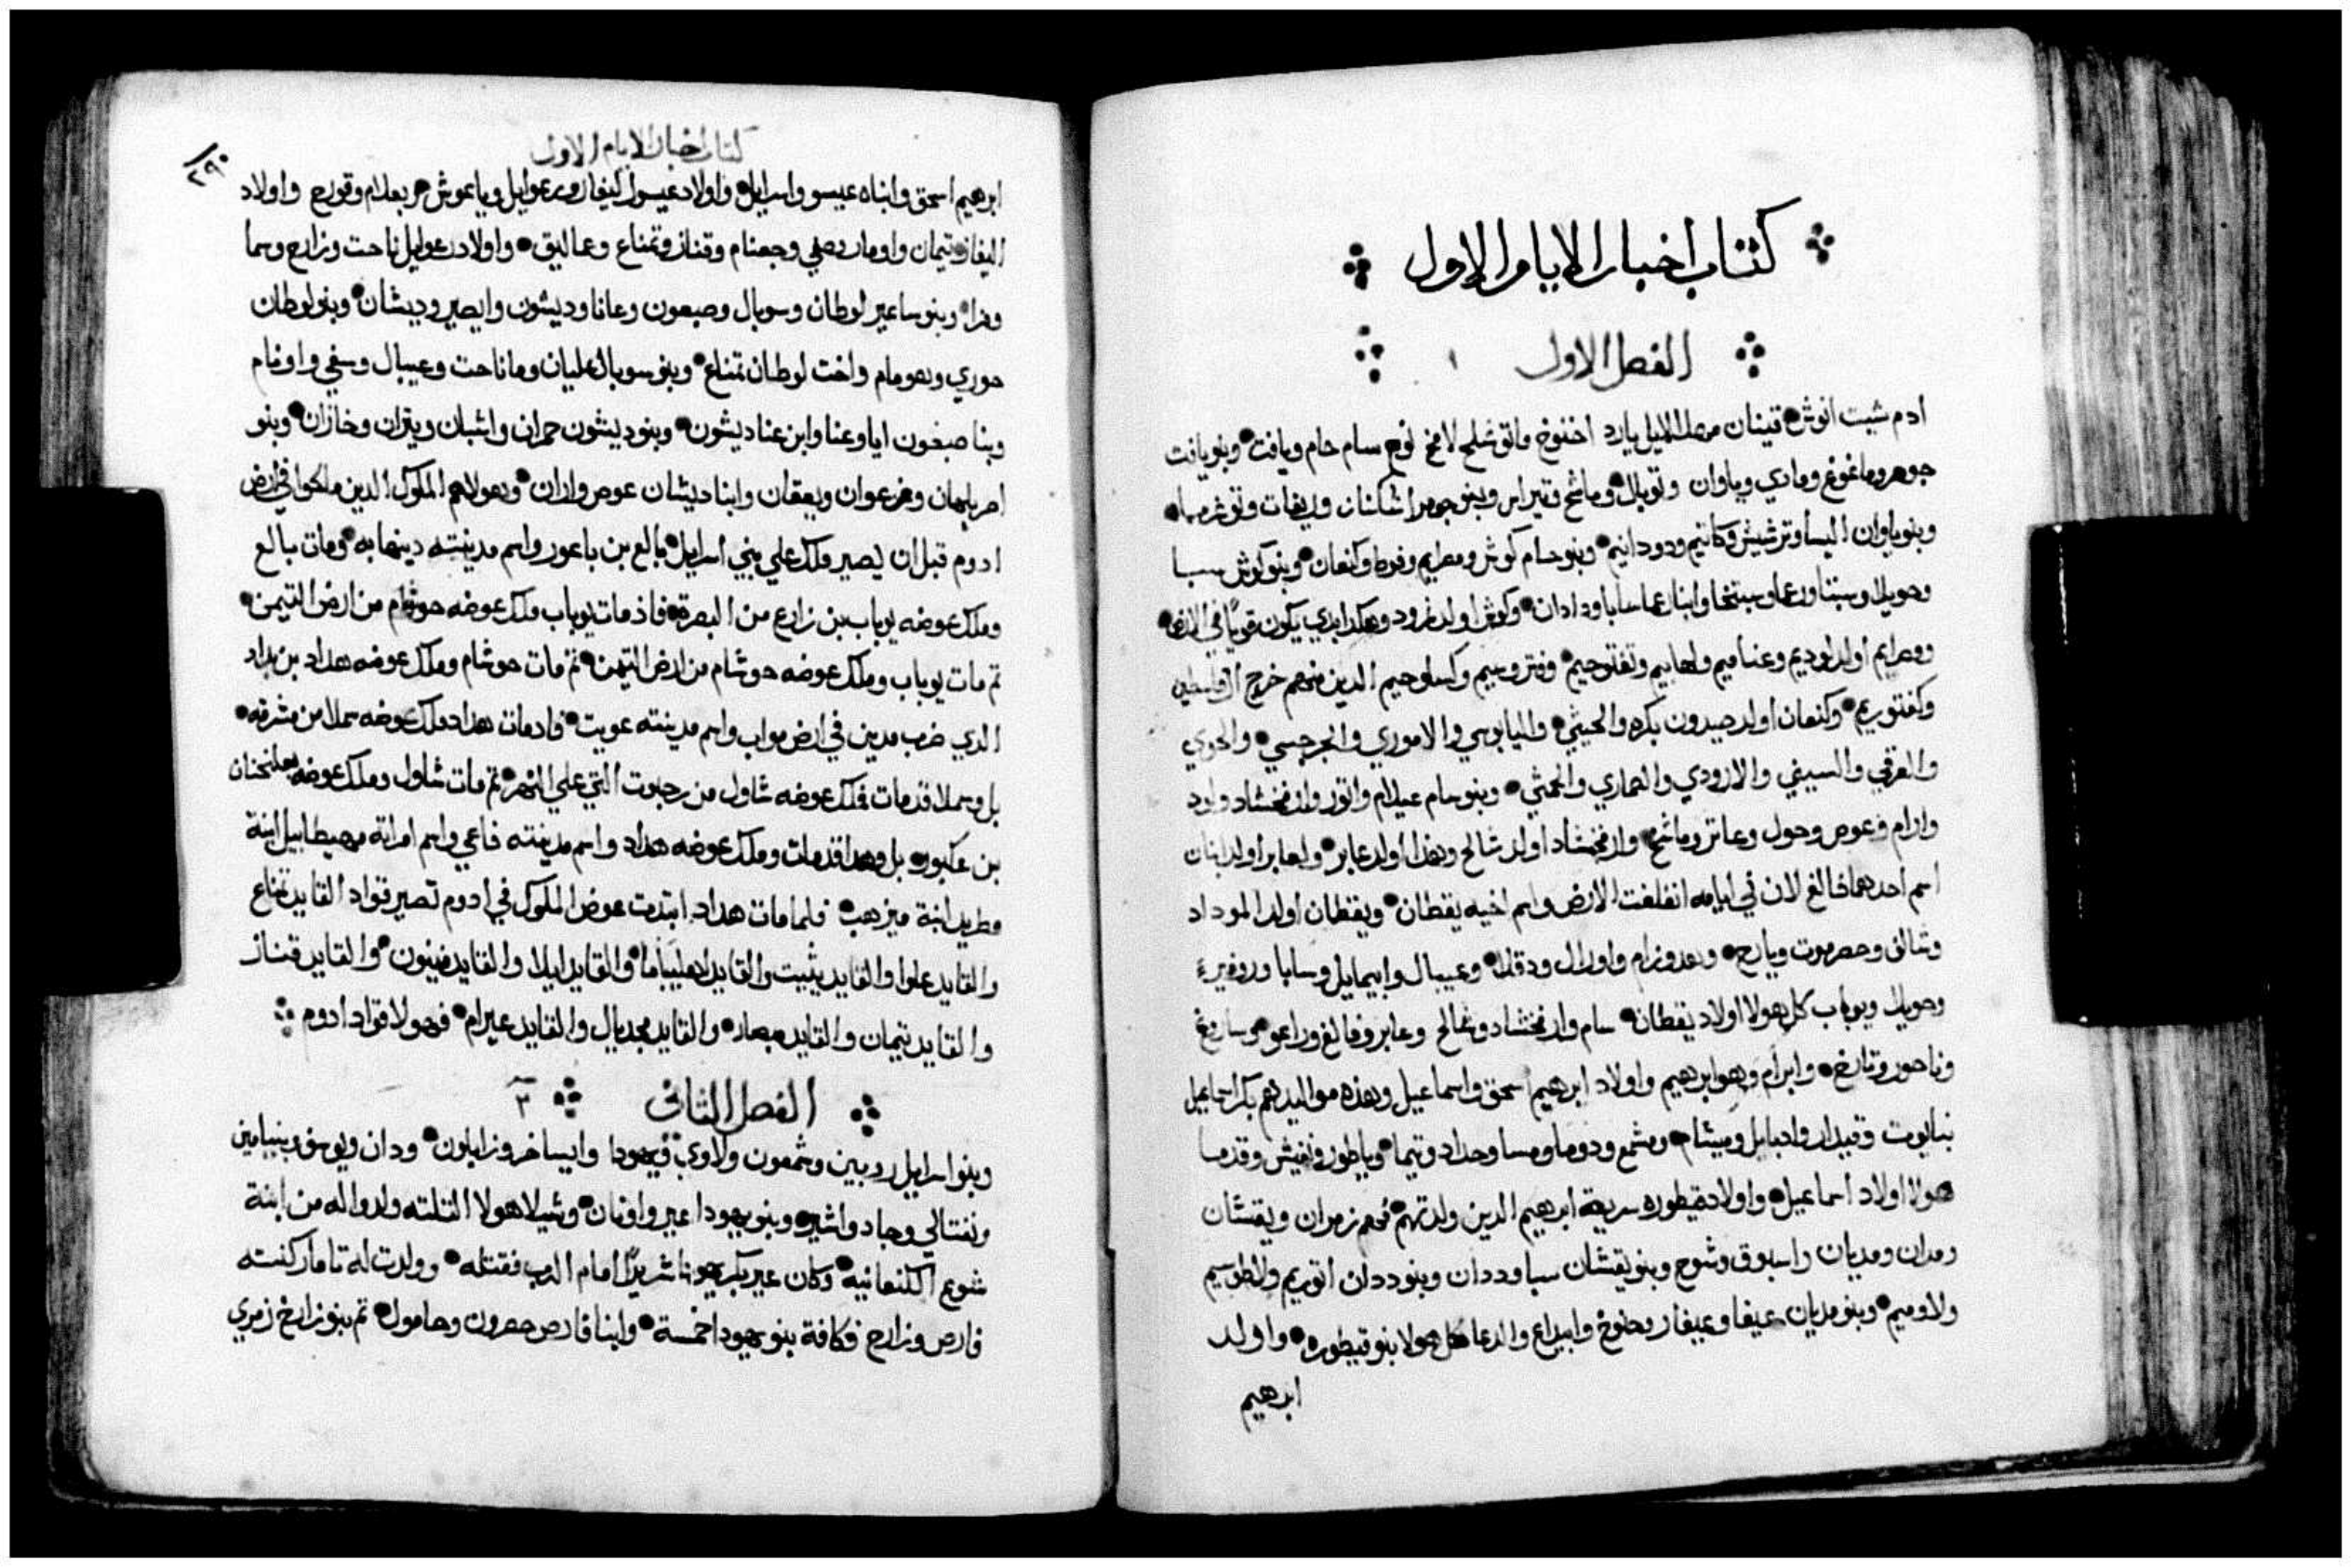 كتاب اخبار الايام الاول
الفصل الاول ١
ادم شيت انوش قينان مهلالاييل يارد اخنوخ ماتوشلح لامخ نوح سام حام ويافت وبنو يافت
جوهر وماغوغ ومادي وياوان وتوبال وماشخ وتيراس وبنو جومر اشكناز وريفات وتوغرما
وبنو ياوان اليسا وترشيش وكاتيم ودودانيم وبنو حام كوش ومصرايم وفوط وكنعان وبنو كوش سبا
وحويلا وسبتا ورعما وسبتخا وابنا رعما سابا ودادان وكوش اولد نمرود وهكذا ابدي يكون قويًا في الارض
ومصرايم اولد لوديم وعناميم ولهابيم ونفتوحيم وفتروسيم وكسلوحيم الدين منهم خرج
وكفتوريم وكنعان اولد صيدون بكره والحيثي واليابوسي والاموري والجرجسي والحوي
والعرقي والسيني والارودي والصماري والحمثي وبنو سام عيلام واتور وارفخشاد ولود
وارام وعوص وحول وعاتر وماشخ وارفخشاد اولد شالح وهذا اولد عابر ولعابر اولد ابنان
اسم احدهما فالغ لان في ايامه انفلغت الارض واسم اخيه يقطان ويقطان اولد الموداد
وشالف وحصرموت ويارح وهدورام واوزال ودقلا وعيبال وابيمايل وسابا
وحويلا ويوباب كل هولا اولاد يقطان سام وارفخشاد وشالح وعابر وفالغ وراعو وساروغ
وناحور وتارخ وابرام وهو ابرهيم واولاد ابرهيم اسحق واسماعيل وهذه مواليدهم بكر اسماعيل
نبايوت وقيدار وادبايل وميشام ومشمع ودوما ومسا وحداد وتيما وياطور ونفيش وقدما
هولا اولاد اسماعيل واولاد قيطوره سرية ابرهيم الدين ولدتهم فهم زمران ويقشان
ومدان ومديان واسبوق وشوح وبنو يقشان سبا وددان وبنو ددان اتوريم ولاطوسيم
ولاوميم وبنو مديان عيفا وعيفار وحنوخ وابيداع والدعا كل هولا بنو قيطوره واولد
ابرهيم
كتاب اخبار الايام الاول
ابرهيم اسحق وابناه عيسو واسرايل واولاد عيسو اليفاز ورعوايل وياعوش ويعلام وقورح واولاد
اليفاز تيمان واومار وصفي وجعتام وقناز وتمناع وعماليق واولاد رعوايل ناحت وزارح وسما
ومزا وبنو ساعير لوطان وسوبال وصبعون وعانا وديشون وايصير وديشان وبنو لوطان
حوري وهومام واخت لوطان تمناع وبنو سوبال عليان وماناحت وعيبال وسفي واونام
وبنا صبعون ايا وعنا وابن عنا ديشون وبنو ديشون حمران واشبان ويتران وخازان وبنو
ايصر بلهان وزعوان ويعقان وابنا ديشان عوص واران وهولا هم الملوك الدين ملكوا في ارض
ادوم قبل ان يصير ملك علي بني اسرايل بالع بن باعور واسم مدينته دينهابه ومات بالع
وملك عوضه يوباب بن زارح من البصره فاذ مات يوباب ملك عوضه حوشام من ارض التيمن
تم مات يوباب وملك عوضه حوشام من ارض التيمن تم مات حوشام وملك عوضه هداد بن بداد
الدي ضرب مدين في ارض مواب واسم مدينته عويت فادمات هداد ملك عوضه سملا من مشرقه
بل وسملا قد مات فملك عوضه شاول من رحبوت التي علي النهر تم مات شاول وملك عوضه بعلحنان
بن عكبور بل وهذا قد مات وملك عوضه هداد واسم مدينته فاعي واسم امراته مهيطابيل ابنة
مطريد ابنة ميزهب فلما مات هداد ابتدت عوض الملوك في ادوم تصير قواد القايد تمناع
والقايد علوا والقايد يثيت والقايد اهليباما والقايد ايلا والقايد فينون والقايد قناز
والقايد تيمان والقايد مبصار والقايد مجديال والقايد عيرام فهولا قواد ادوم
الفصل الثاني ٢
وبنو اسرايل روبين وشمعون ولاوي ويهودا وايساخر وزابلون ودان ويوسف وبنيامين
ونفتالي وجاد واشير وبنو يهودا عير واونان وشيلا هولا التلته ولدوا له من ابنة
شوع الكنعانيه وكان عير بكر يهودا شريرًا امام الرب فقتله وولدت له تامار كنته
فارص وزارح فكافة بنو يهودا خمسة وابنا فارص حصرون وحامول تم بنو زارح زمري